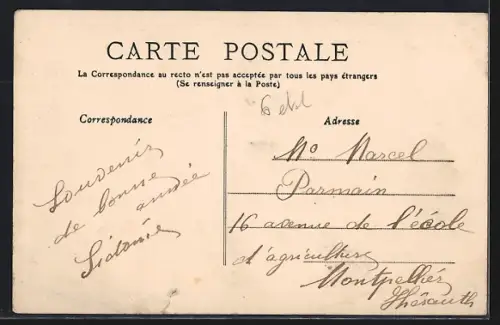 CARTE POSTALE
La Correspondance au recto n'est pas acceptée par tous les pays étrangers
(Se renseigner à la Poste)
Correspondance
Souvenir
de bonne
année
Sidonie
Adresse
Mr Marcel
Parmain
16 avenue de l'école
d'agriculture
Montpellier
Hérault